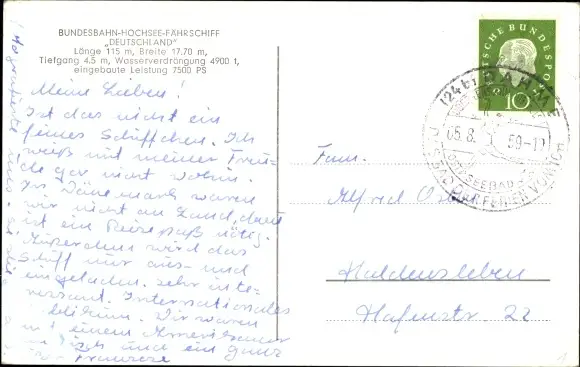 BUNDESBAHN-HOCHSEE-FÄHRSCHIFF
„DEUTSCHLAND"
Länge 115 m, Breite 17.70 m,
Tiefgang 4.5 m, Wasserverdrängung 4900 t,
eingebaute Leistung 7500 PS
Meine Lieben!
Ist das nicht ein
feines Schiffchen. Ich
weiß mit meiner Freu-
de gar nicht wohin.
In Dänemark waren
wir nicht an Land, dort
ist ein Reisepaß nötig.
Außerdem wird das
Schiff nur aus- und
eingeladen. Sehr inte-
ressant. Internationales
Wir waren
mit einem Amerikaner
am Tisch und ein ganz
DEUTSCHE BUNDESPOST
10
(24b) DAHME
05.8. 59-10
OSTSEEBAD
Fam.
Alfred
Haldensleben
Hafenstr. 22